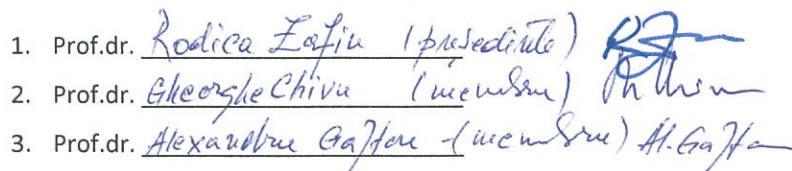 1. Prof.dr. Rodica Zafiu (președinte)
2. Prof.dr. Gheorghe Chivu (membru)
3. Prof.dr. Alexandru Gafton (membru) Al. Gafton